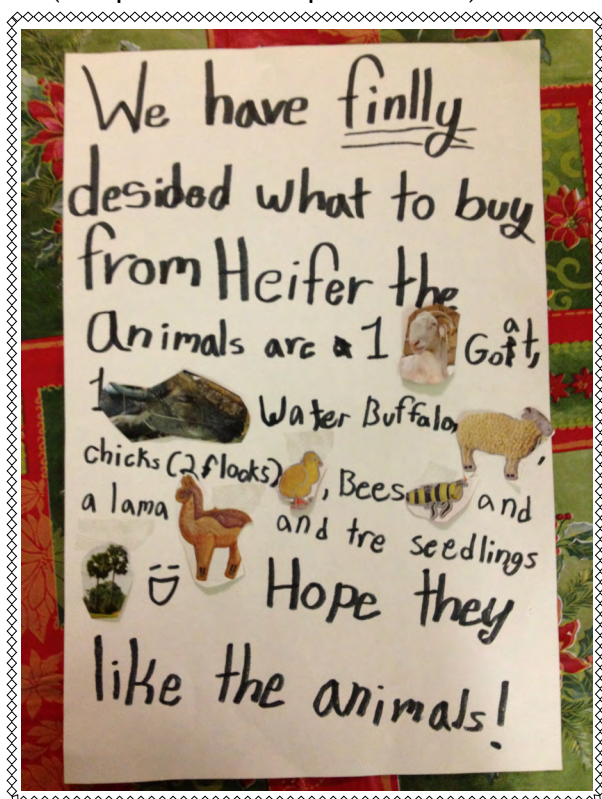 We have finlly
desided what to buy
from Heifer the
animals are 1 Goat,
1 Water Buffalo,
chicks (2 flocks), Bees,
a lama and
and tre seedlings
Hope they
like the animals!